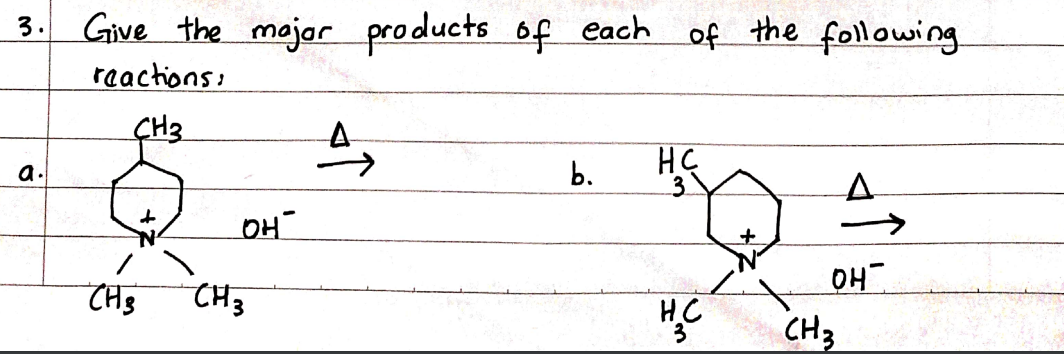 3. Give the major products of each of the following
reactions:
a.
CH3
Δ
→
+
N
OH⁻
CH3 CH3
b.
H3C
Δ
→
+
N
OH⁻
H3C
CH3